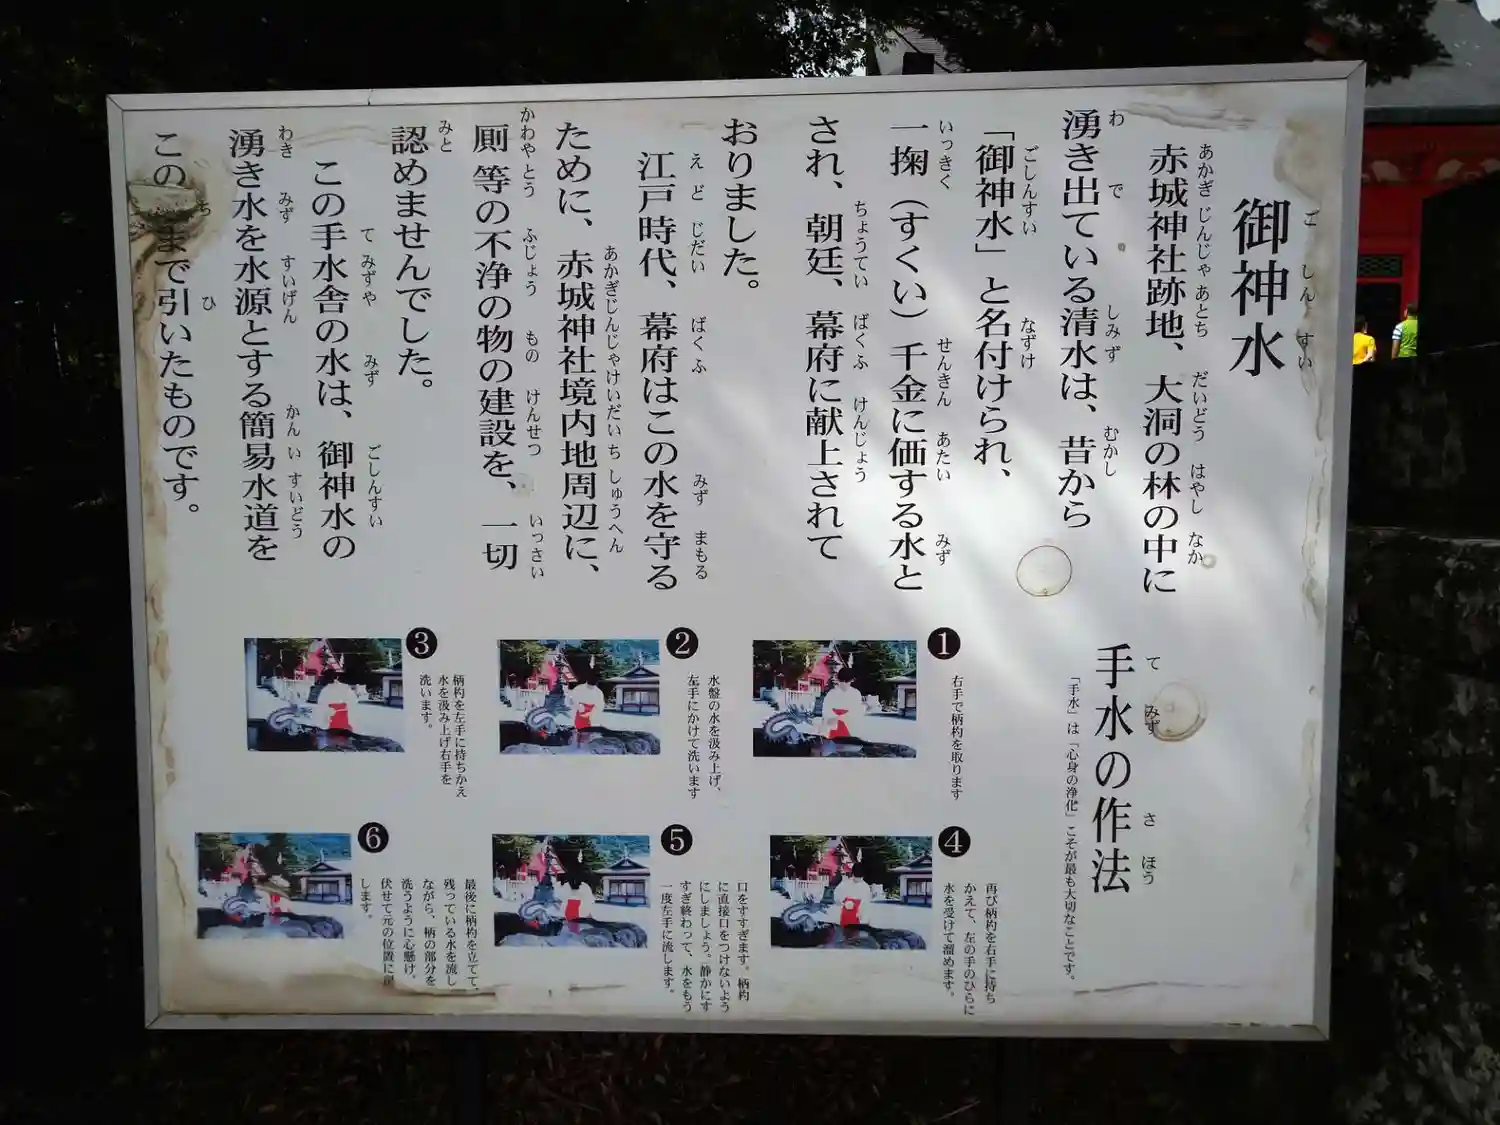 御神水
赤城神社跡地、大洞の林の中に
湧き出ている清水は、昔から
「御神水」と名付けられ、
一掬（すくい）千金に価する水と
され、朝廷、幕府に献上されて
おりました。
江戸時代、幕府はこの水を守る
ために、赤城神社境内地周辺に、
厠等の不浄の物の建設を、一切
認めませんでした。
この手水舎の水は、御神水の
湧き水を水源とする簡易水道を
この まで引いたものです。
手水の作法
「手水」は「心身の浄化」こそが最も大切なことです。
❶
右手で柄杓を取ります
❷
水盤の水を汲み上げ、
左手にかけて洗います
❸
柄杓を左手に持ちかえ
水を汲み上げ右手を
洗います。
❹
再び柄杓を右手に持ち
かえて、左の手のひらに
水を受けて溜めます。
❺
口をすすぎます。柄杓
に直接口をつけないよう
にしましょう。静かにす
すぎ終わって、水をもう
一度左手に流します。
❻
最後に柄杓を立てて、
残っている水を流し
ながら、柄の部分を
洗うように心懸け。
伏せて元の位置に
します。